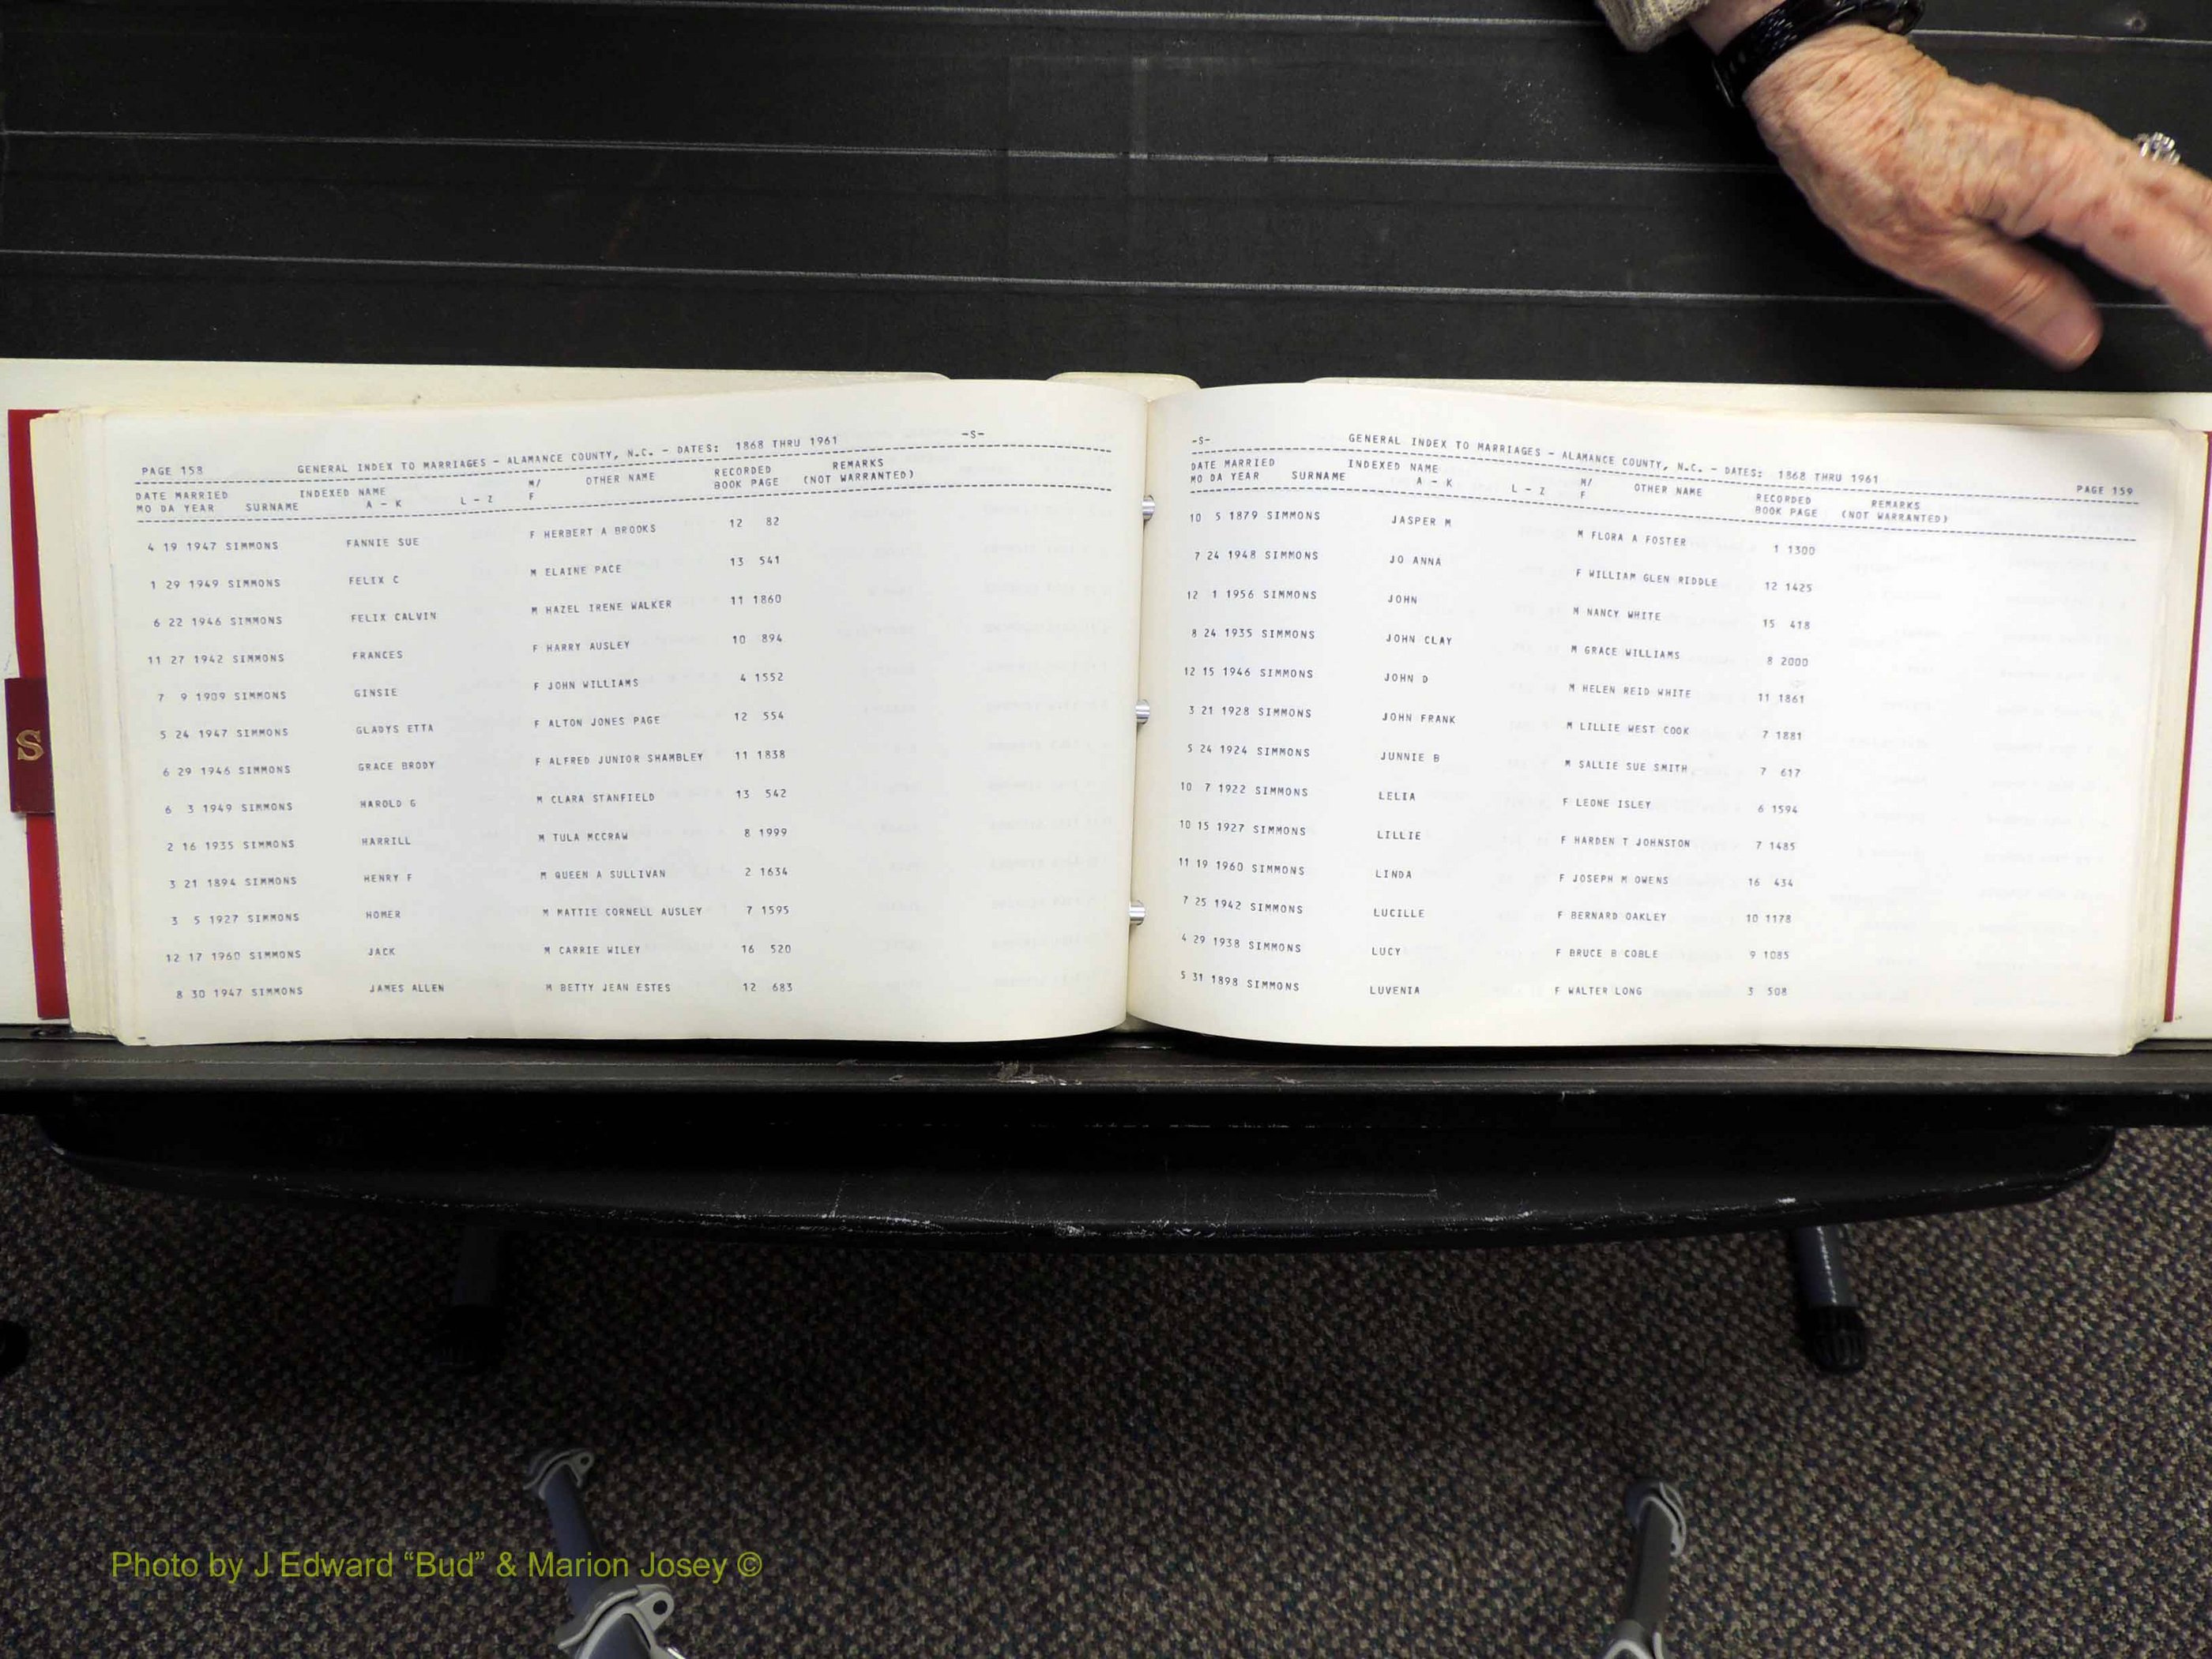 PAGE 158 GENERAL INDEX TO MARRIAGES - ALAMANCE COUNTY, N.C. - DATES: 1868 THRU 1961 -S-
DATE MARRIED INDEXED NAME M/ OTHER NAME RECORDED REMARKS
MO DA YEAR SURNAME A - K L - Z F BOOK PAGE (NOT WARRANTED)
4 19 1947 SIMMONS FANNIE SUE F HERBERT A BROOKS 12 82
1 29 1949 SIMMONS FELIX C M ELAINE PACE 13 541
6 22 1946 SIMMONS FELIX CALVIN M HAZEL IRENE WALKER 11 1860
11 27 1942 SIMMONS FRANCES F HARRY AUSLEY 10 894
7 9 1909 SIMMONS GINSIE F JOHN WILLIAMS 4 1552
5 24 1947 SIMMONS GLADYS ETTA F ALTON JONES PAGE 12 554
6 29 1946 SIMMONS GRACE BRODY F ALFRED JUNIOR SHAMBLEY 11 1838
6 3 1949 SIMMONS HAROLD G M CLARA STANFIELD 13 542
2 16 1935 SIMMONS HARRILL M TULA MCCRAW 8 1999
3 21 1894 SIMMONS HENRY F M QUEEN A SULLIVAN 2 1634
3 5 1927 SIMMONS HOMER M MATTIE CORNELL AUSLEY 7 1595
12 17 1960 SIMMONS JACK M CARRIE WILEY 16 520
8 30 1947 SIMMONS JAMES ALLEN M BETTY JEAN ESTES 12 683
-S- GENERAL INDEX TO MARRIAGES - ALAMANCE COUNTY, N.C. - DATES: 1868 THRU 1961 PAGE 159
DATE MARRIED INDEXED NAME M/ OTHER NAME RECORDED REMARKS
MO DA YEAR SURNAME A - K L - Z F BOOK PAGE (NOT WARRANTED)
10 5 1879 SIMMONS JASPER M M FLORA A FOSTER 1 1300
7 24 1948 SIMMONS JO ANNA F WILLIAM GLEN RIDDLE 12 1425
12 1 1956 SIMMONS JOHN M NANCY WHITE 15 418
8 24 1935 SIMMONS JOHN CLAY M GRACE WILLIAMS 8 2000
12 15 1946 SIMMONS JOHN D M HELEN REID WHITE 11 1861
3 21 1928 SIMMONS JOHN FRANK M LILLIE WEST COOK 7 1881
5 24 1924 SIMMONS JUNNIE B M SALLIE SUE SMITH 7 617
10 7 1922 SIMMONS LELIA F LEONE ISLEY 6 1594
10 15 1927 SIMMONS LILLIE F HARDEN T JOHNSTON 7 1485
11 19 1960 SIMMONS LINDA F JOSEPH M OWENS 16 434
7 25 1942 SIMMONS LUCILLE F BERNARD OAKLEY 10 1178
4 29 1938 SIMMONS LUCY F BRUCE B COBLE 9 1085
5 31 1898 SIMMONS LUVENIA F WALTER LONG 3 508
S
Photo by J Edward “Bud” & Marion Josey ©